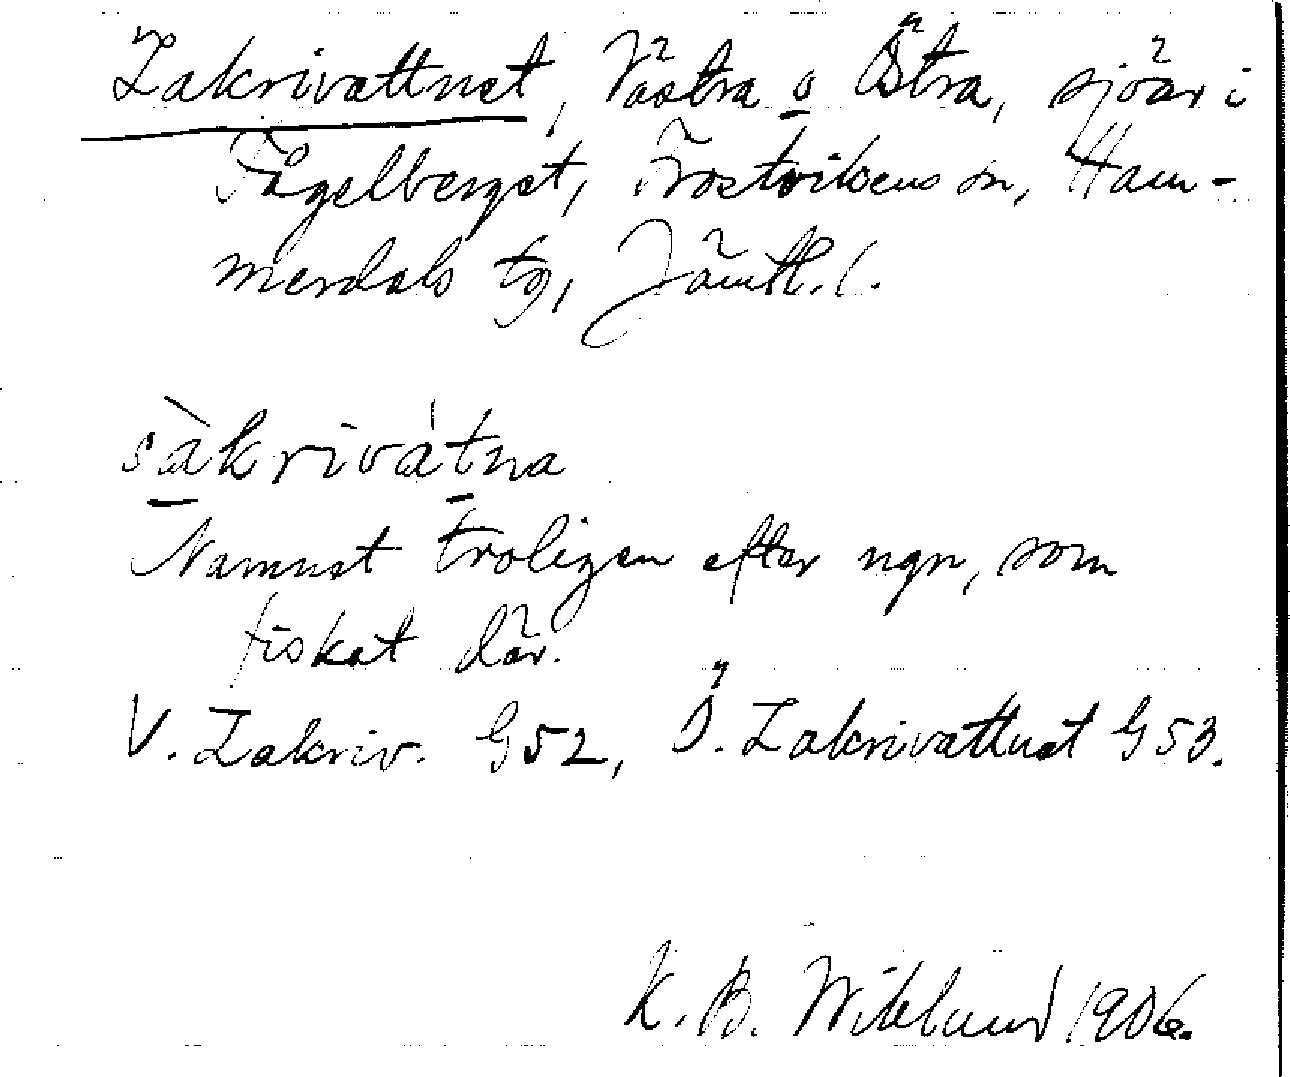 Zakrivattnet, Västra o Östra, sjöar i
Fågelberget, Frostvikens sn, Ham-
merdals tg, Jämtl. l.
sàkrivátna
Namnet troligen efter ngn, som
fiskat där.
V. Zakriv. G52, Ö. Zakrivattnet G53.
K. B. Wiklund 1906.